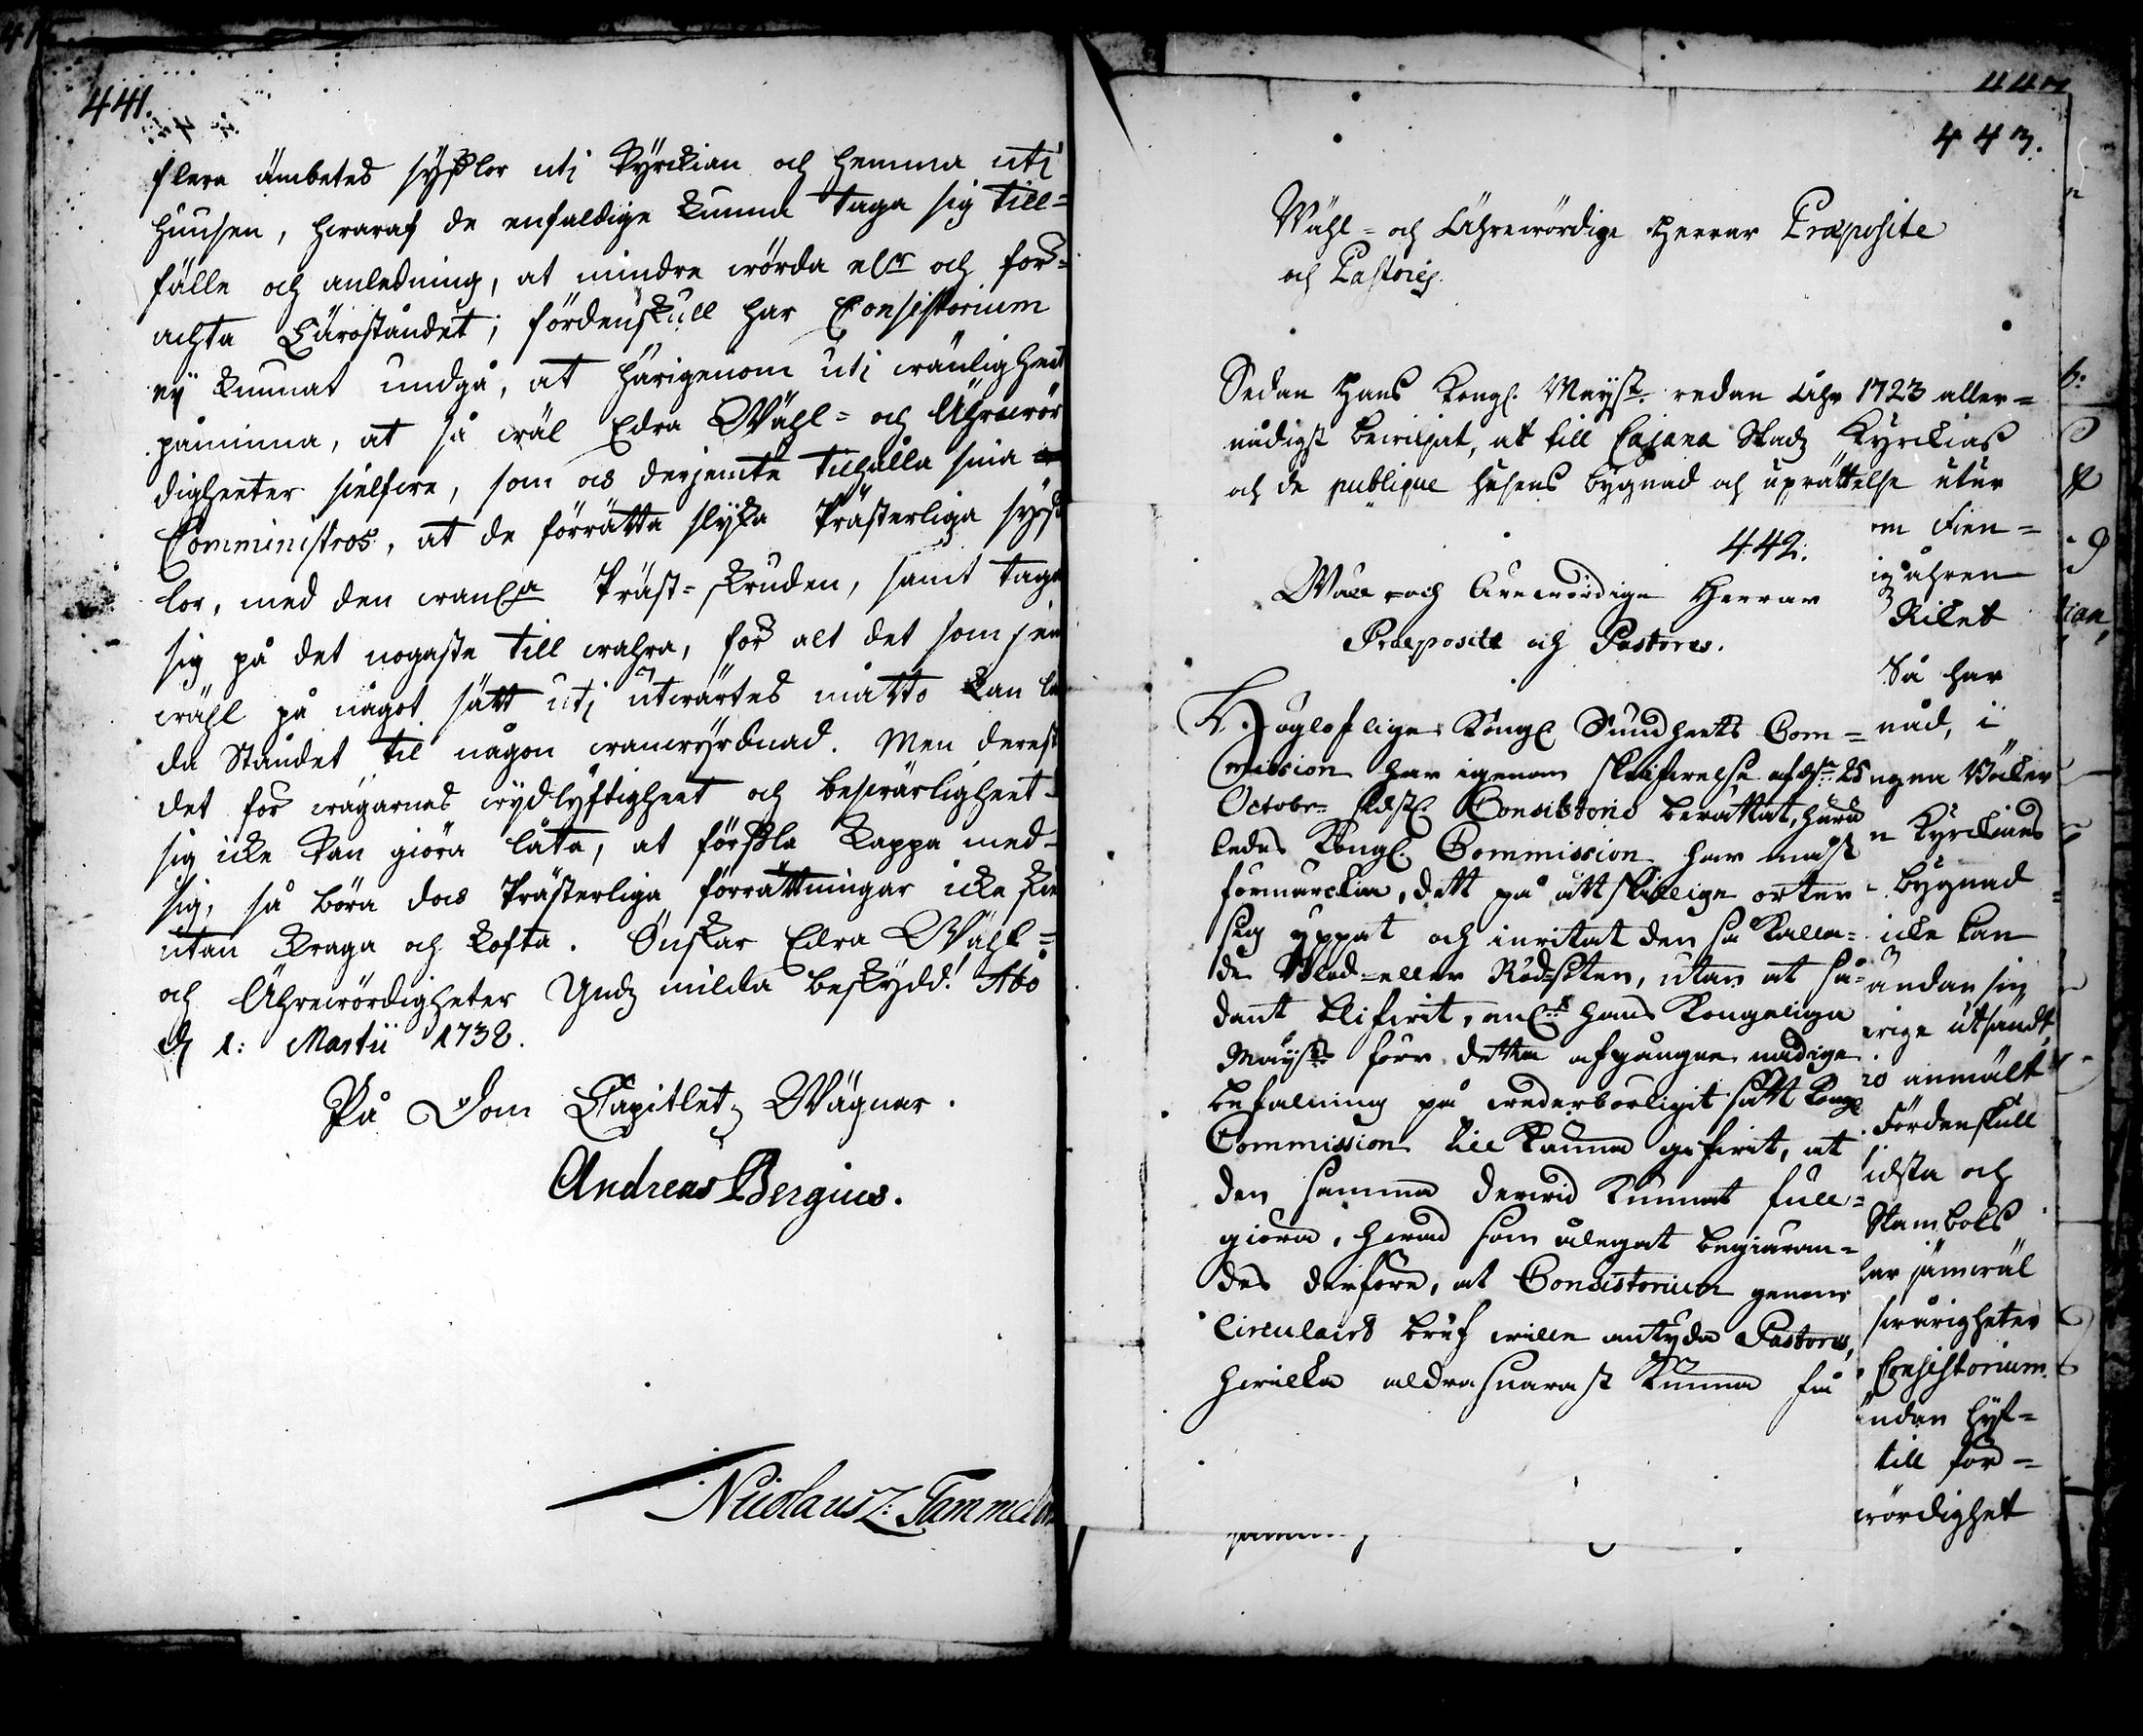 441.
flera ämbetes sysslor uti Kyrckian och hemma uti
huusen, hwaraf de enfaldige kunna taga sig till=
fälle och anledning, at mindre wörda elr och för=
achta Läroståndet; fördenskull har Consistorium
ey kunnat undgå, at härigenom uti wänligheet
påminna, at så wäl Edra Wähl= och Ährewör
digheeter sielfwe, som ock derjemte tilhålla sina
Comministros, at de förrätta slyka Prästerliga syss
lor, med den wanl:a Präst=skruden, samt taga
sig på det nogaste till wahra, för alt det som jem
wähl på något sätt uti utwärtes måtto kan le
da Ståndet til någon wanwyrdnad. Men derest
det för wägarnes wydlyftigheet och beswärligheet
sig icke kan giöra låta, at föra Kappa med
sig, så böra dock Prästerliga förrättningar icke ske
utan Kraga och Kofta. Önskar Edra Wähl=
och Ährewördigheter Gudz milda beskydd! Åbo
d. 1: Martii 1738.
På Dom Capitletz Wägnar.
Andreas Bergius.
Nicolaus Z: Tammelin
443.
Wähl= och Ährewördige Herrar Præposite
och Pastores.
Sedan Hans Kongl. Mayst. redan Åhr 1723 aller=
nådigst bewiljat, at till Cajana Stadz Kyrckias
och de publique husens bygnad och uprättelse utur
442.
Wäl= och Ärewördige Herrar
Præposite och Pastores.
Högloflige Kongl. Sundheets Com=
mission har igenom skrifwelse af d. 25
Octobr. sidstl. Consistorio berättat, huru
ledes Kongl. Commission har måst
förmärckia, dett på åttskillige orter
sig yppat och inritat den så kalla=
de Blod= eller Rödsoten, utan at så=
dant blifwit, enl.t Hans Kongeliga
Mayst:s förr detta afgångne nådige
befalning på wederbörligit sätt Kongl.
Commission till känna gifwit, at
den samma derwid kunnat full=
giöra, hwad som ålegat begiäran=
des derföre, at Consistorium genom
Circulairt bref wille antyda Pastores,
hwilka aldrasnarast kunna få
om Fien=
åhren
Riket
Så har
nåd, i
ngen Böcker
n Kyrckians
bygnad
icke kan
undan sig
rige utsändt,
io anmält
Fördenskull
sidsta och
Stamboks
har jämwäl
swårigheter
Consistorium.
undan hyf=
till för=
wördighet